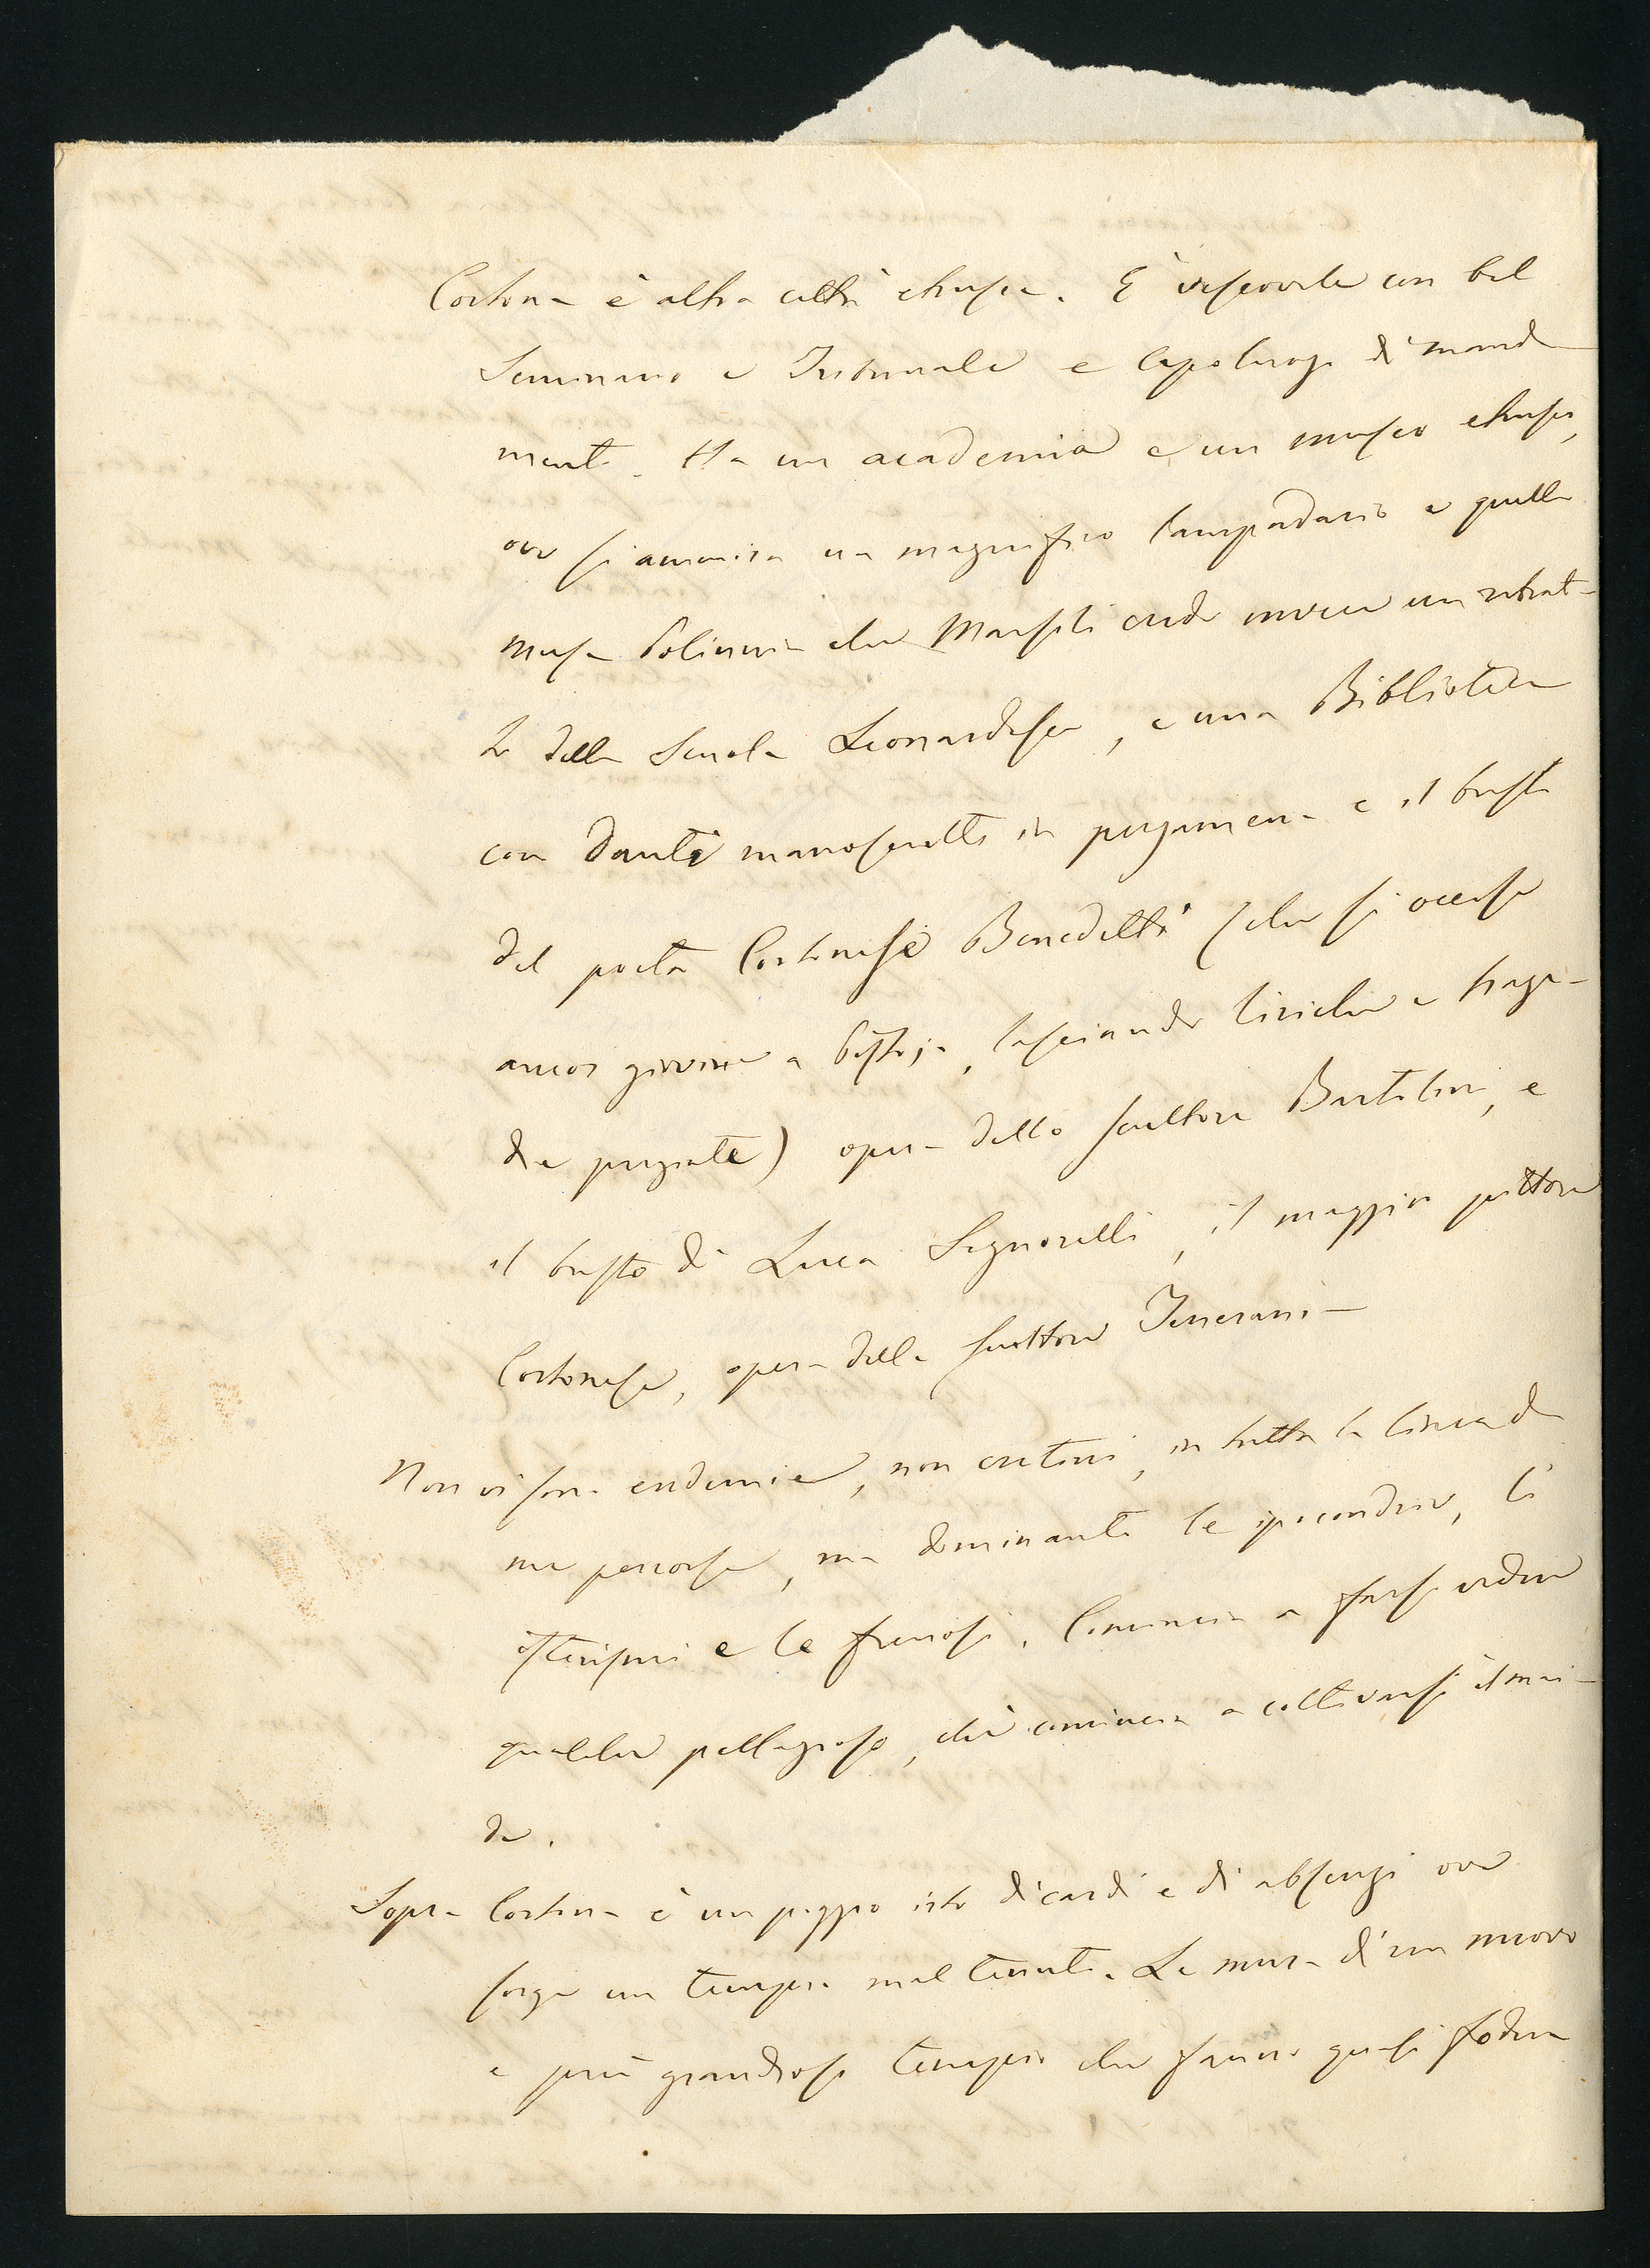 Cortona è altra città etrusca. È vescovile con bel
Seminario e Tribunale e capoluogo di manda
mento. Ha un academia e un museo etrusco,
ove si ammira un magnifico lampadario e quella
musa Polimnia che Marsili crede invece un ritrat-
to della Scuola Leonardesca, e una Biblioteca
con Dante manoscritto in pergamena e il busto
del poeta Cortonese Benedetti (che si occise
ancor giovine a Pistoja, lasciando liriche e trage-
die pregiate) opera dello scultore Bartolini, e
il busto di Luca Signorelli, il maggior pittore
Cortonese, opera dello scultore Tenerani—
Non vi sono endemie, non cretini, in tutta la linea da
me percorsa, ma dominanti le ipocondrie, li
isterismi e le frenosi. Comincia a farsi vedere
qualche pellagroso, chè comincia a coltivarsi il mai-
de.
Sopra Cortona è un poggio irto di cardi e di absenzi ove
sorge un tempio mal tenuto. Le mura d'un nuovo
e più grandioso tempio che fanno quasi fodera